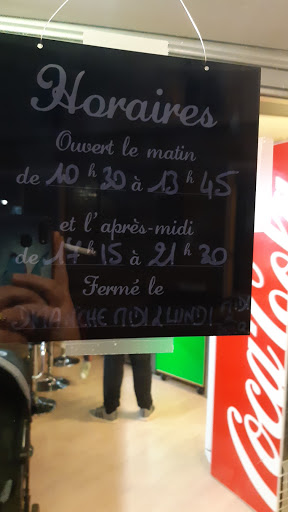 Horaires
Ouvert le matin
de 10 h 30 à 13 h 45
et l'après-midi
de 17 h 15 à 21 h 30
Fermé le
DIMANCHE MIDI & LUNDI MIDI
Coca-Cola